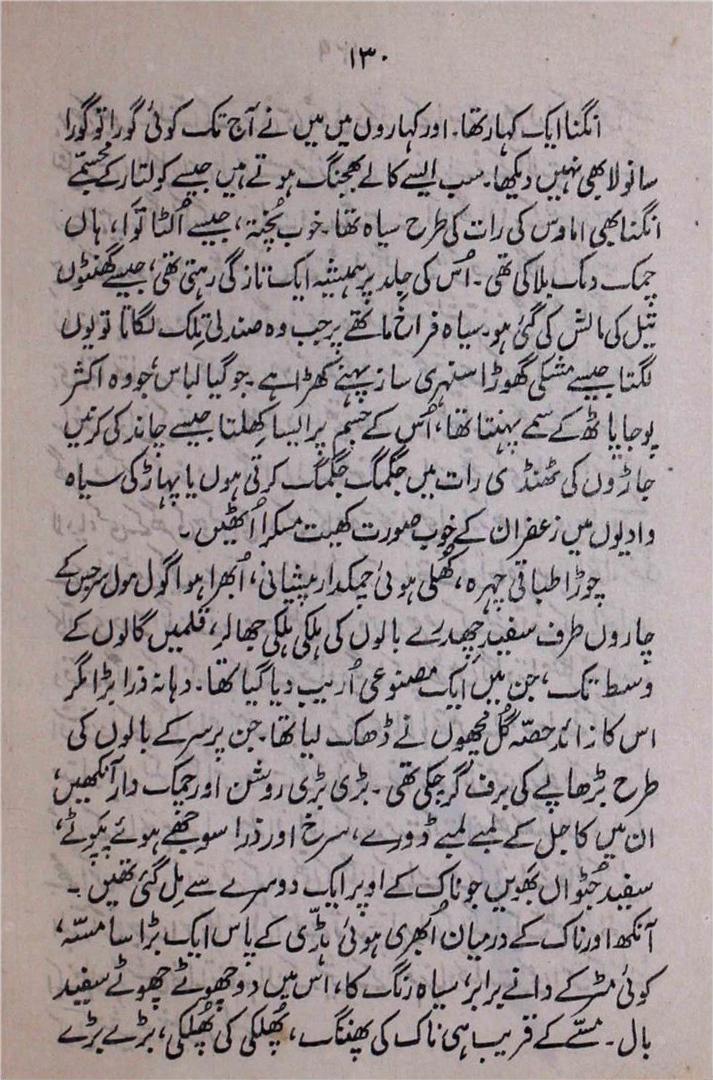 ۱۳۰
انگنا ایک کہار تھا۔ اور کہاروں میں میں نے آج تک کوئی گورا تو گورا
سانولا بھی نہیں دیکھا۔ سب ایسے کالے بھجنگ ہوتے ہیں جیسے کولتار کے مجسمے
انگنا بھی اماوس کی رات کی طرح سیاہ تھا۔ خوب پختہ، جیسے اُلٹا توا، ہاں
چمک دمک بلا کی تھی۔ اُس کی جِلد پر ہمیشہ ایک تازگی رہتی تھی، جیسے گھنٹوں
تیل کی مالش کی گئی ہو۔ سیاہ فراخ ماتھے پر جب وہ صندلی تِلک لگاتا تو یوں
لگتا جیسے مشکی گھوڑا سنہری ساز پہنے کھڑا ہے۔ جوگیا لباس، جو وہ اکثر
پوجا پاٹھ کے سمے پہنتا تھا، اُس کے جسم پر ایسا کھِلتا جیسے چاند کی کرنیں
جاڑوں کی ٹھنڈی رات میں جگمگ جگمگ کرتی ہوں یا پہاڑ کی سیاہ
وادیوں میں زعفران کے خوب صورت کھیت مسکرا اُٹھیں۔
چوڑا طباقی چہرہ، کھُلی ہوئی چمکدار پیشانی، اُبھرا ہوا گول مول سر جس کے
چاروں طرف سفید چھدرے بالوں کی ہلکی ہلکی جھالر، قلمیں گالوں کے
وسط تک، جن میں ایک مصنوعی اُریب دیا گیا تھا۔ دہانہ ذرا بڑا مگر
اس کا زائد حصّہ گُل مچھوں نے ڈھک لیا تھا۔ جن پر سر کے بالوں کی
طرح بڑھاپے کی برف گر چکی تھی۔ بڑی بڑی روشن اور چمک دار آنکھیں،
ان میں کاجل کے لمبے لمبے ڈورے، سرخ اور ذرا سوجھے ہوئے پپوٹے،
سفید جُٹواں بھَویں جو ناک کے اوپر ایک دوسرے سے مِل گئی تھیں۔
آنکھ اور ناک کے درمیان اُبھری ہوئی ہڈّی کے پاس ایک بڑا سا مسّہ،
کوئی مٹر کے دانے برابر، سیاہ رنگ کا، اس میں دو چھوٹے چھوٹے سفید
بال۔ مسّے کے قریب ہی ناک کی پھننگ، پھُلکی کی پھُلکی، بڑے بڑے